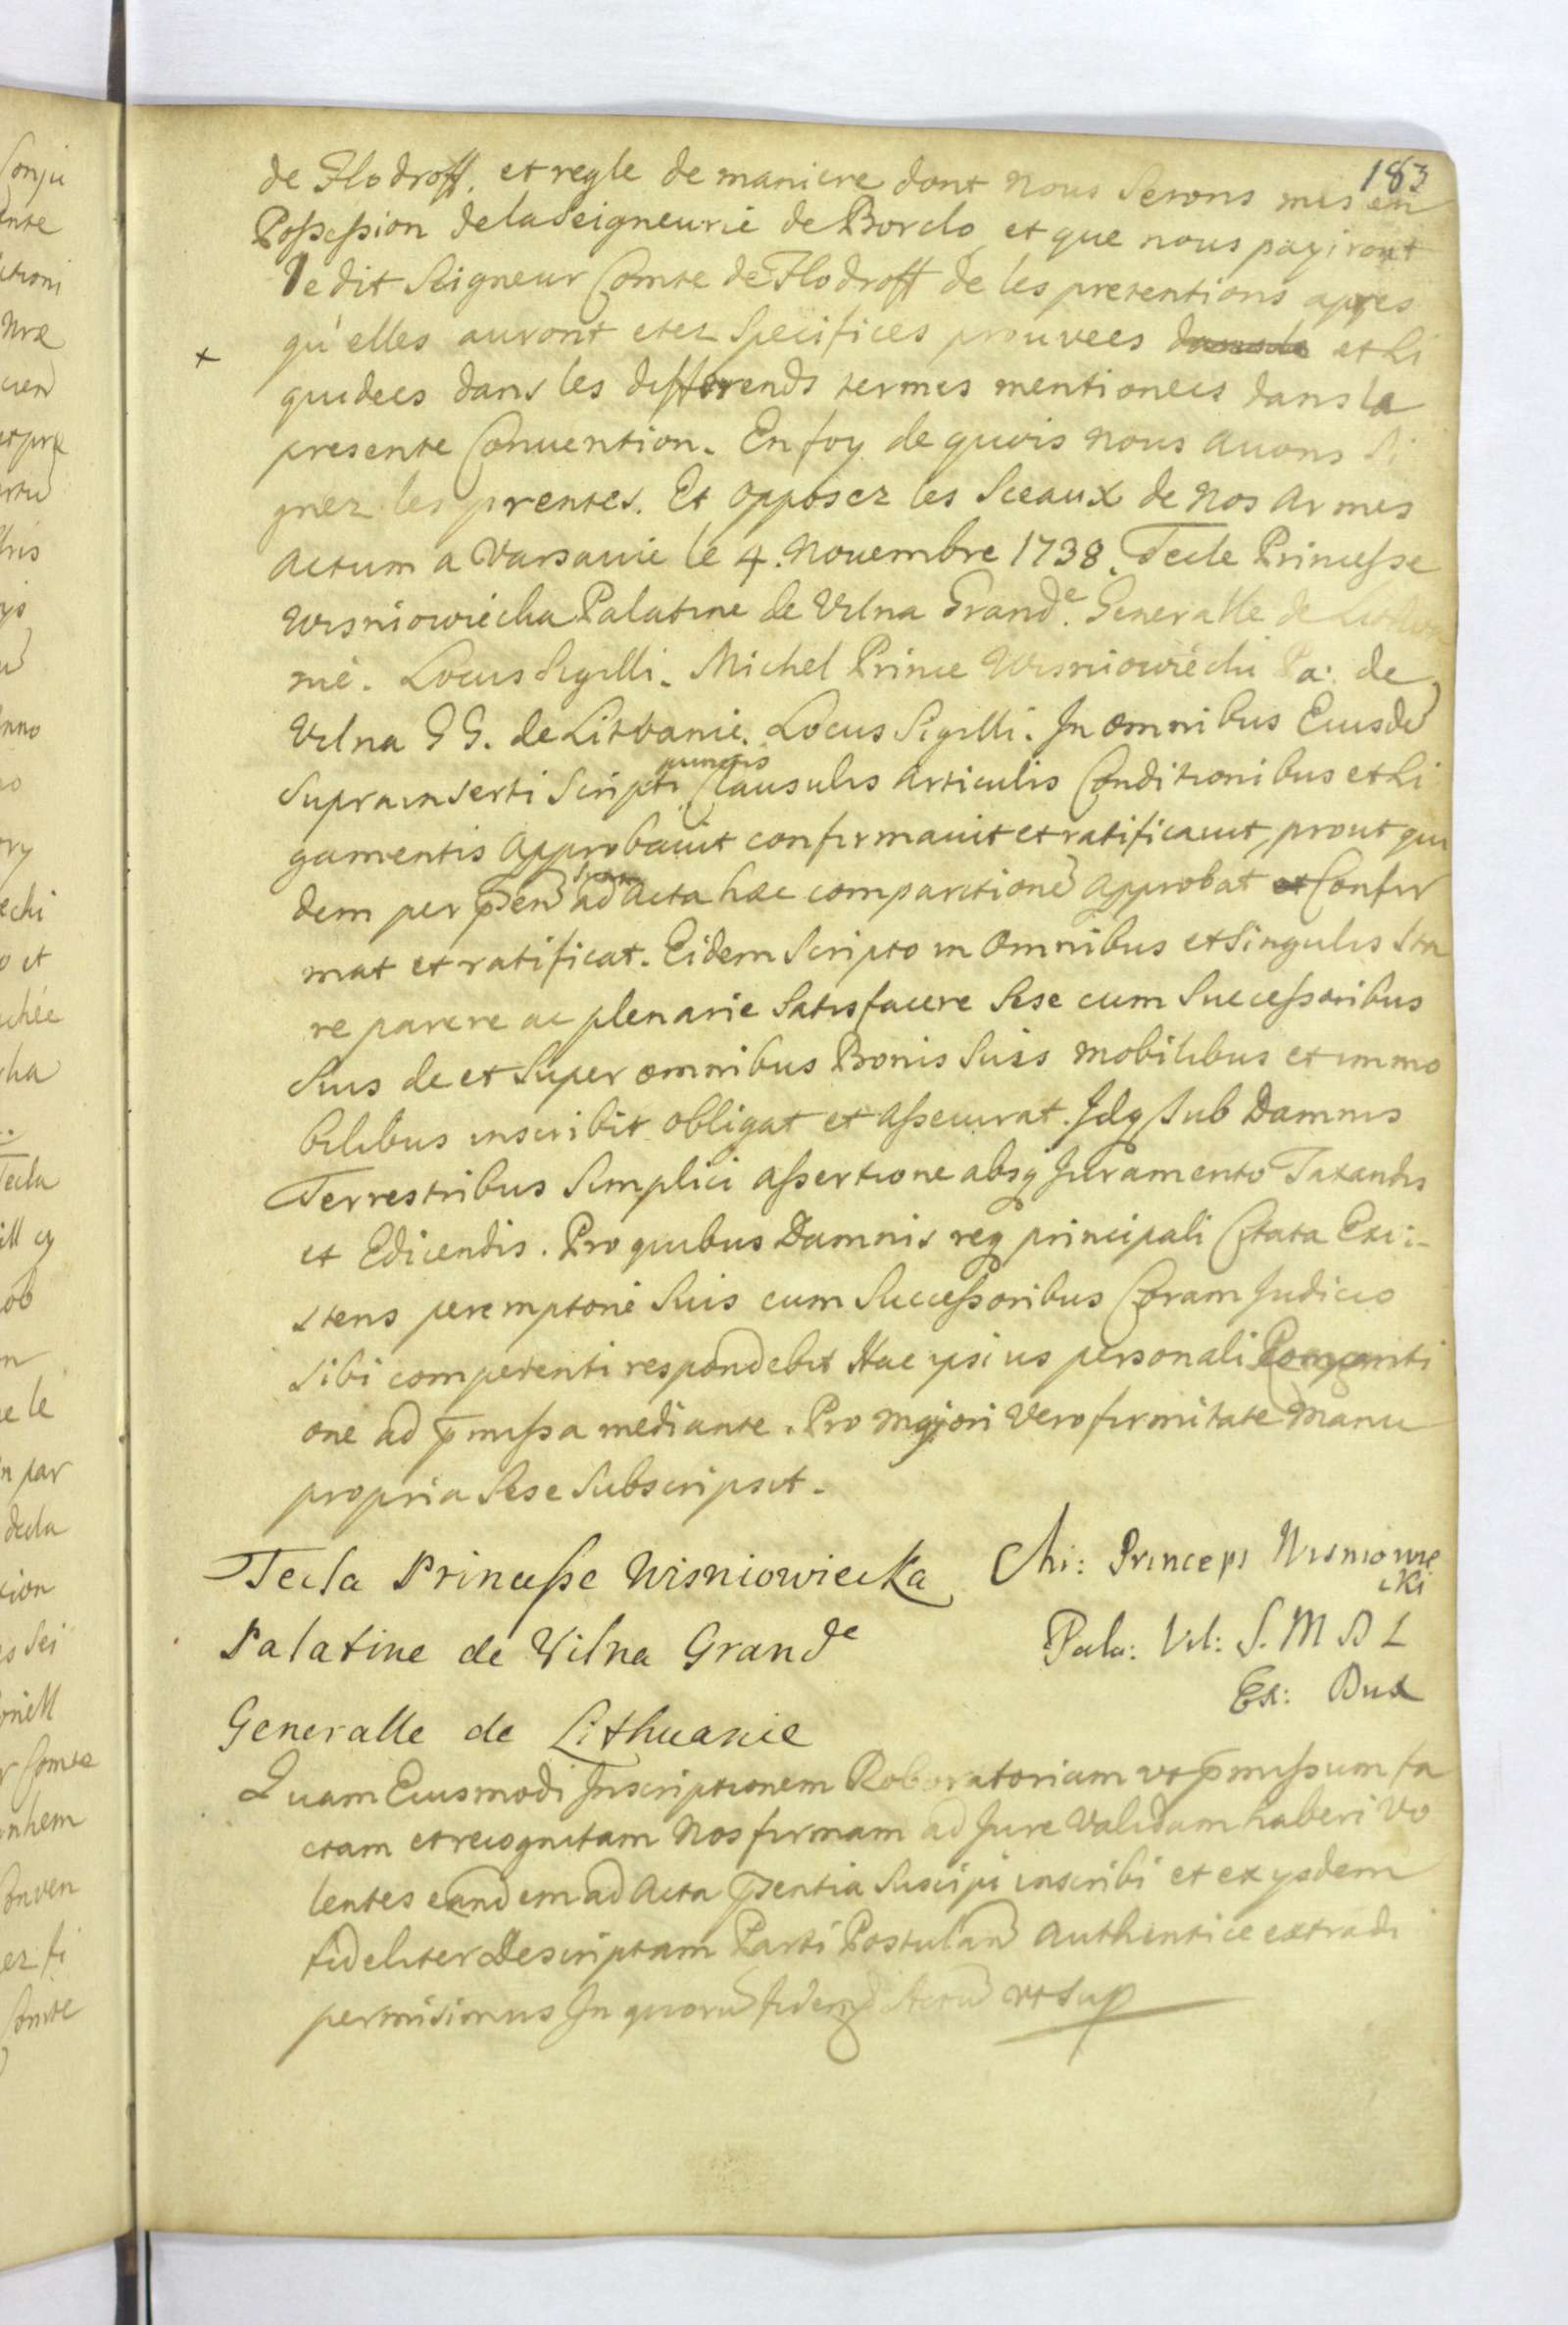 183
de Flodroff. et regle de maniere dont nous Serons mis en
Possession de la Seigneurie de Borclo et que nous payiront
le dit Seigneur Comte de Flodroff de les pretentions apres
qu'elles auront etez Specifices prouvees et Li
quidees dans les differends termes mentionees dans la
presente Convention. En foy de quois nous avons Si
gnez les prentes. Et opposez les Sceaux de nos Armes
Actum a Varsavie le 4. Novembre 1738. Tecle Princesse
Wisniowiecka Palatine de Vilna Grande. Generalle de
nie. Locus Sigilli. Michel Prince Wisniowiecki Pa: de
Vilna G G. de Litvanie. Locus Sigilli. In omnibus Eiusdē
Suprainserti Scripti punctis Clausulis Articulis Conditionibus et Li
gamentis Approbavit confirmavit et ratificavit, prout qui
dem per p̄sen̄ suam ad Acta hæc comparitionē Approbat et Confir
mat et ratificat. Eidem Scripto in Omnibus et Singulis Sta
re parere ac plenarie Satisfacere Sese cum Successoribus
Suis de et Super omnibus Bonis Suis mobilibus et immo
bilibus inscribit obligat et assecurat. Idq Sub Damnis
Terrestribus Simplici assertione absq Juramento Taxandis
et Edicendis. Pro quibus Damnis req principali Citata Exi:-
stens peremptorie Suis cum Successoribus Coram Judicio
Sibi competenti respondebit Hac ipsius personali
one ad p̄missa mediante. Pro majori Vero firmitate Manu
propria Sese Subscripsit.
Tecla Princesse Wisniowiecka
Palatine de Vilna Grande
Generalle de Lithuanie
Mi: Princeps Wisniowie
cki
Pala: Vil: S. M D L
Ex: Dux
Quam Eiusmodi Inscriptionem Roboratoriam ut p̄missum fa
ctam et recognitam Nos firmam ad Jure Validam haberi Vo
lentes eandem ad Acta p̄sentia Suscipi inscribi et ex ijsdem
fideliter Descriptam Parti Postulan̄ Authentice extradi
permisimus In quorū fidem Actū ut sup